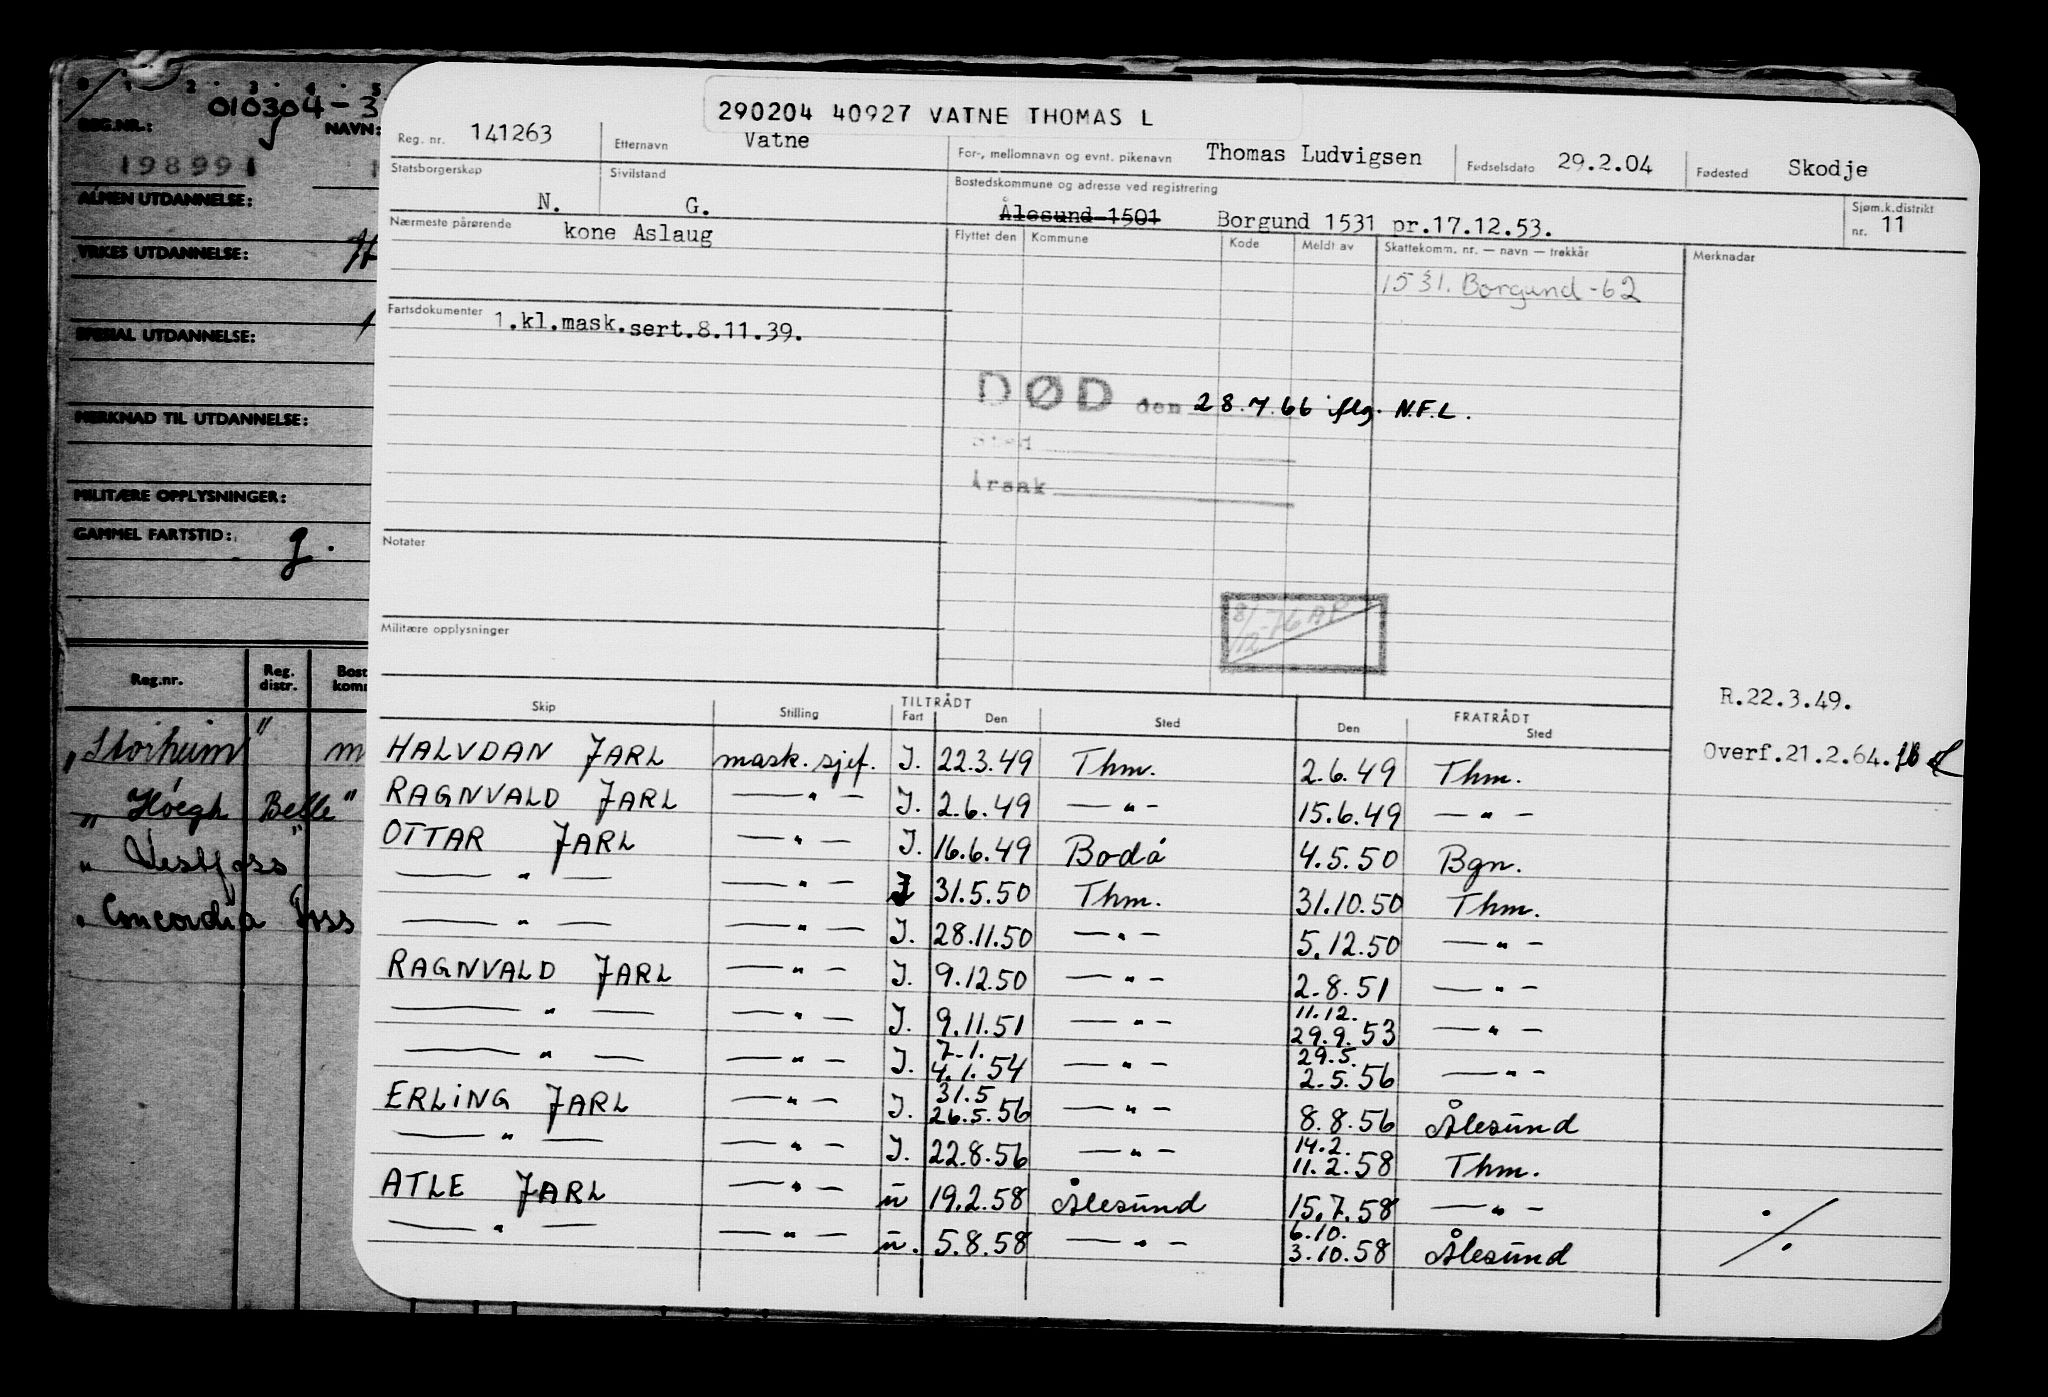 0 1 2 3 4 5
010304-3
REG.NR.: NAVN:
198991
ALMEN UTDANNELSE:
YRKES UTDANNELSE:
SPESIAL UTDANNELSE:
MERKNAD TIL UTDANNELSE:
MILITÆRE OPPLYSNINGER:
GAMMEL FARTSTID: g.
Reg.nr. Reg. distr. Bost komm
"Storheim" m
" Høegh Belle"
" Vestfoss"
" Concordia Foss
290204 40927 VATNE THOMAS L
Reg. nr. 141263 Etternavn Vatne For-, mellomnavn og evnt. pikenavn Thomas Ludvigsen Fødselsdato 29.2.04 Fødested Skodje
Statsborgerskap N. Sivilstand G. Bostedskommune og adresse ved registrering Ålesund 1501 Borgund 1531 pr.17.12.53. Sjøm.k.distrikt nr. 11
Nærmeste pårørende kone Aslaug Flyttet den Kommune Kode Meldt av Skattekomm. nr. — navn — trekkår Merknader
1531. Borgund -62
Fartsdokumenter 1.kl.mask.sert.8.11.39.
DØD den 28.7.66 iflg. N.F.L.
Sted
Årsak
Notater
8/12-76 AP
Militære opplysninger
R.22.3.49.
Overf.21.2.64.
Skip Stilling TILTRÅDT Fart Den Sted Den FRATRÅDT Sted
HALVDAN JARL mask.sjef. I. 22.3.49 Thm. 2.6.49 Thm.
RAGNVALD JARL — " — I. 2.6.49 — " — 15.6.49 — " —
OTTAR JARL — " — I. 16.6.49 Bodø 4.5.50 Bgn.
— " — — " — I 31.5.50 Thm. 31.10.50 Thm.
— " — — " — I. 28.11.50 — " — 5.12.50 — " —
RAGNVALD JARL — " — I. 9.12.50 — " — 2.8.51 — " —
— " — — " — I. 9.11.51 — " — 11.12. 29.9.53 — " —
— " — — " — I. 7.1. 4.1.54 — " — 29.5. 2.5.56 — " —
ERLING JARL — " — I. 31.5 26.5.56 — " — 8.8.56 Ålesund
— " — — " — I. 22.8.56 — " — 14.2. 11.2.58 Thm.
ATLE JARL — " — u 19.2.58 Ålesund 15.7.58 — " —
— " — — " — u. 5.8.58 — " — 6.10. 3.10.58 Ålesund ./.